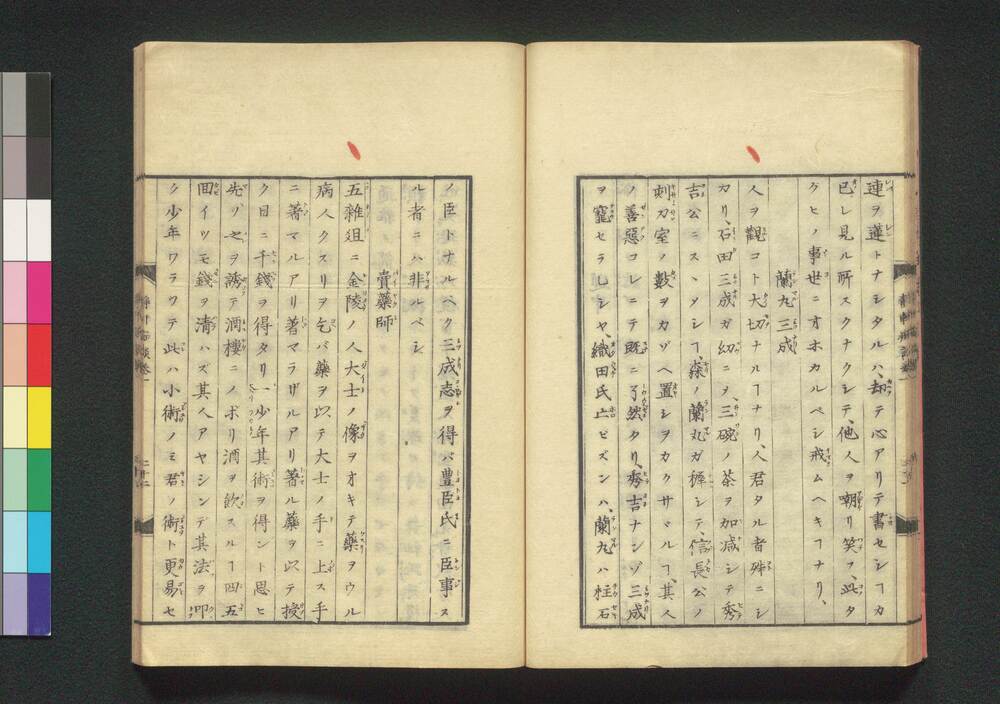 連ヲ蓮トナシタルハ、却テ心アリテ書セシヿカ
已レ見ル所スクナクシテ、他人ヲ嘲リ笑フ、此タ
クヒノ事世ニオホカルベシ戒ムヘキヿナリ、
蘭丸三成
人ヲ觀コト大切ナルヿナリ、人君タル者殊ニシ
カリ、石田三成ガ幼ニヲ、三碗ノ茶ヲ加减シテ秀
吉公ニスヽタシヿ、森ノ蘭丸ガ穉シテ、信長公ノ
刺刀室ノ數ヲカゾヘ置シヲカクサヾルヿ、其人
ノ善惡コレニテ既ニ了然タリ、秀吉ナンゾ三成
ヲ寵セラレシヤ、織田氏亡ビズンハ、蘭丸ハ柱石
ノ臣トナルベク三成志ヲ得バ豊臣氏ニ臣事ス
ル者ニハ非ルベシ
賣藥師
五雜俎ニ金陵ノ人大士ノ像ヲオキテ藥ヲウル
病人クスリヲ乞バ藥ヲ以テ大士ノ手ニ上ス手
ニ著マルアリ著マラザルアリ著ル藥ヲ以テ授
ク日ニ千錢ヲ得タリ一少年其術ヲ得ント思ヒ
先ノ セヲ誘テ酒樓ニノボリ酒ヲ飲スルヿ四五
回イツモ錢ヲ清ハズ其人アヤシンデ其法ヲ叩
ク少年ワラウテ此ハ小術ノミ君ノ術ト更易セ